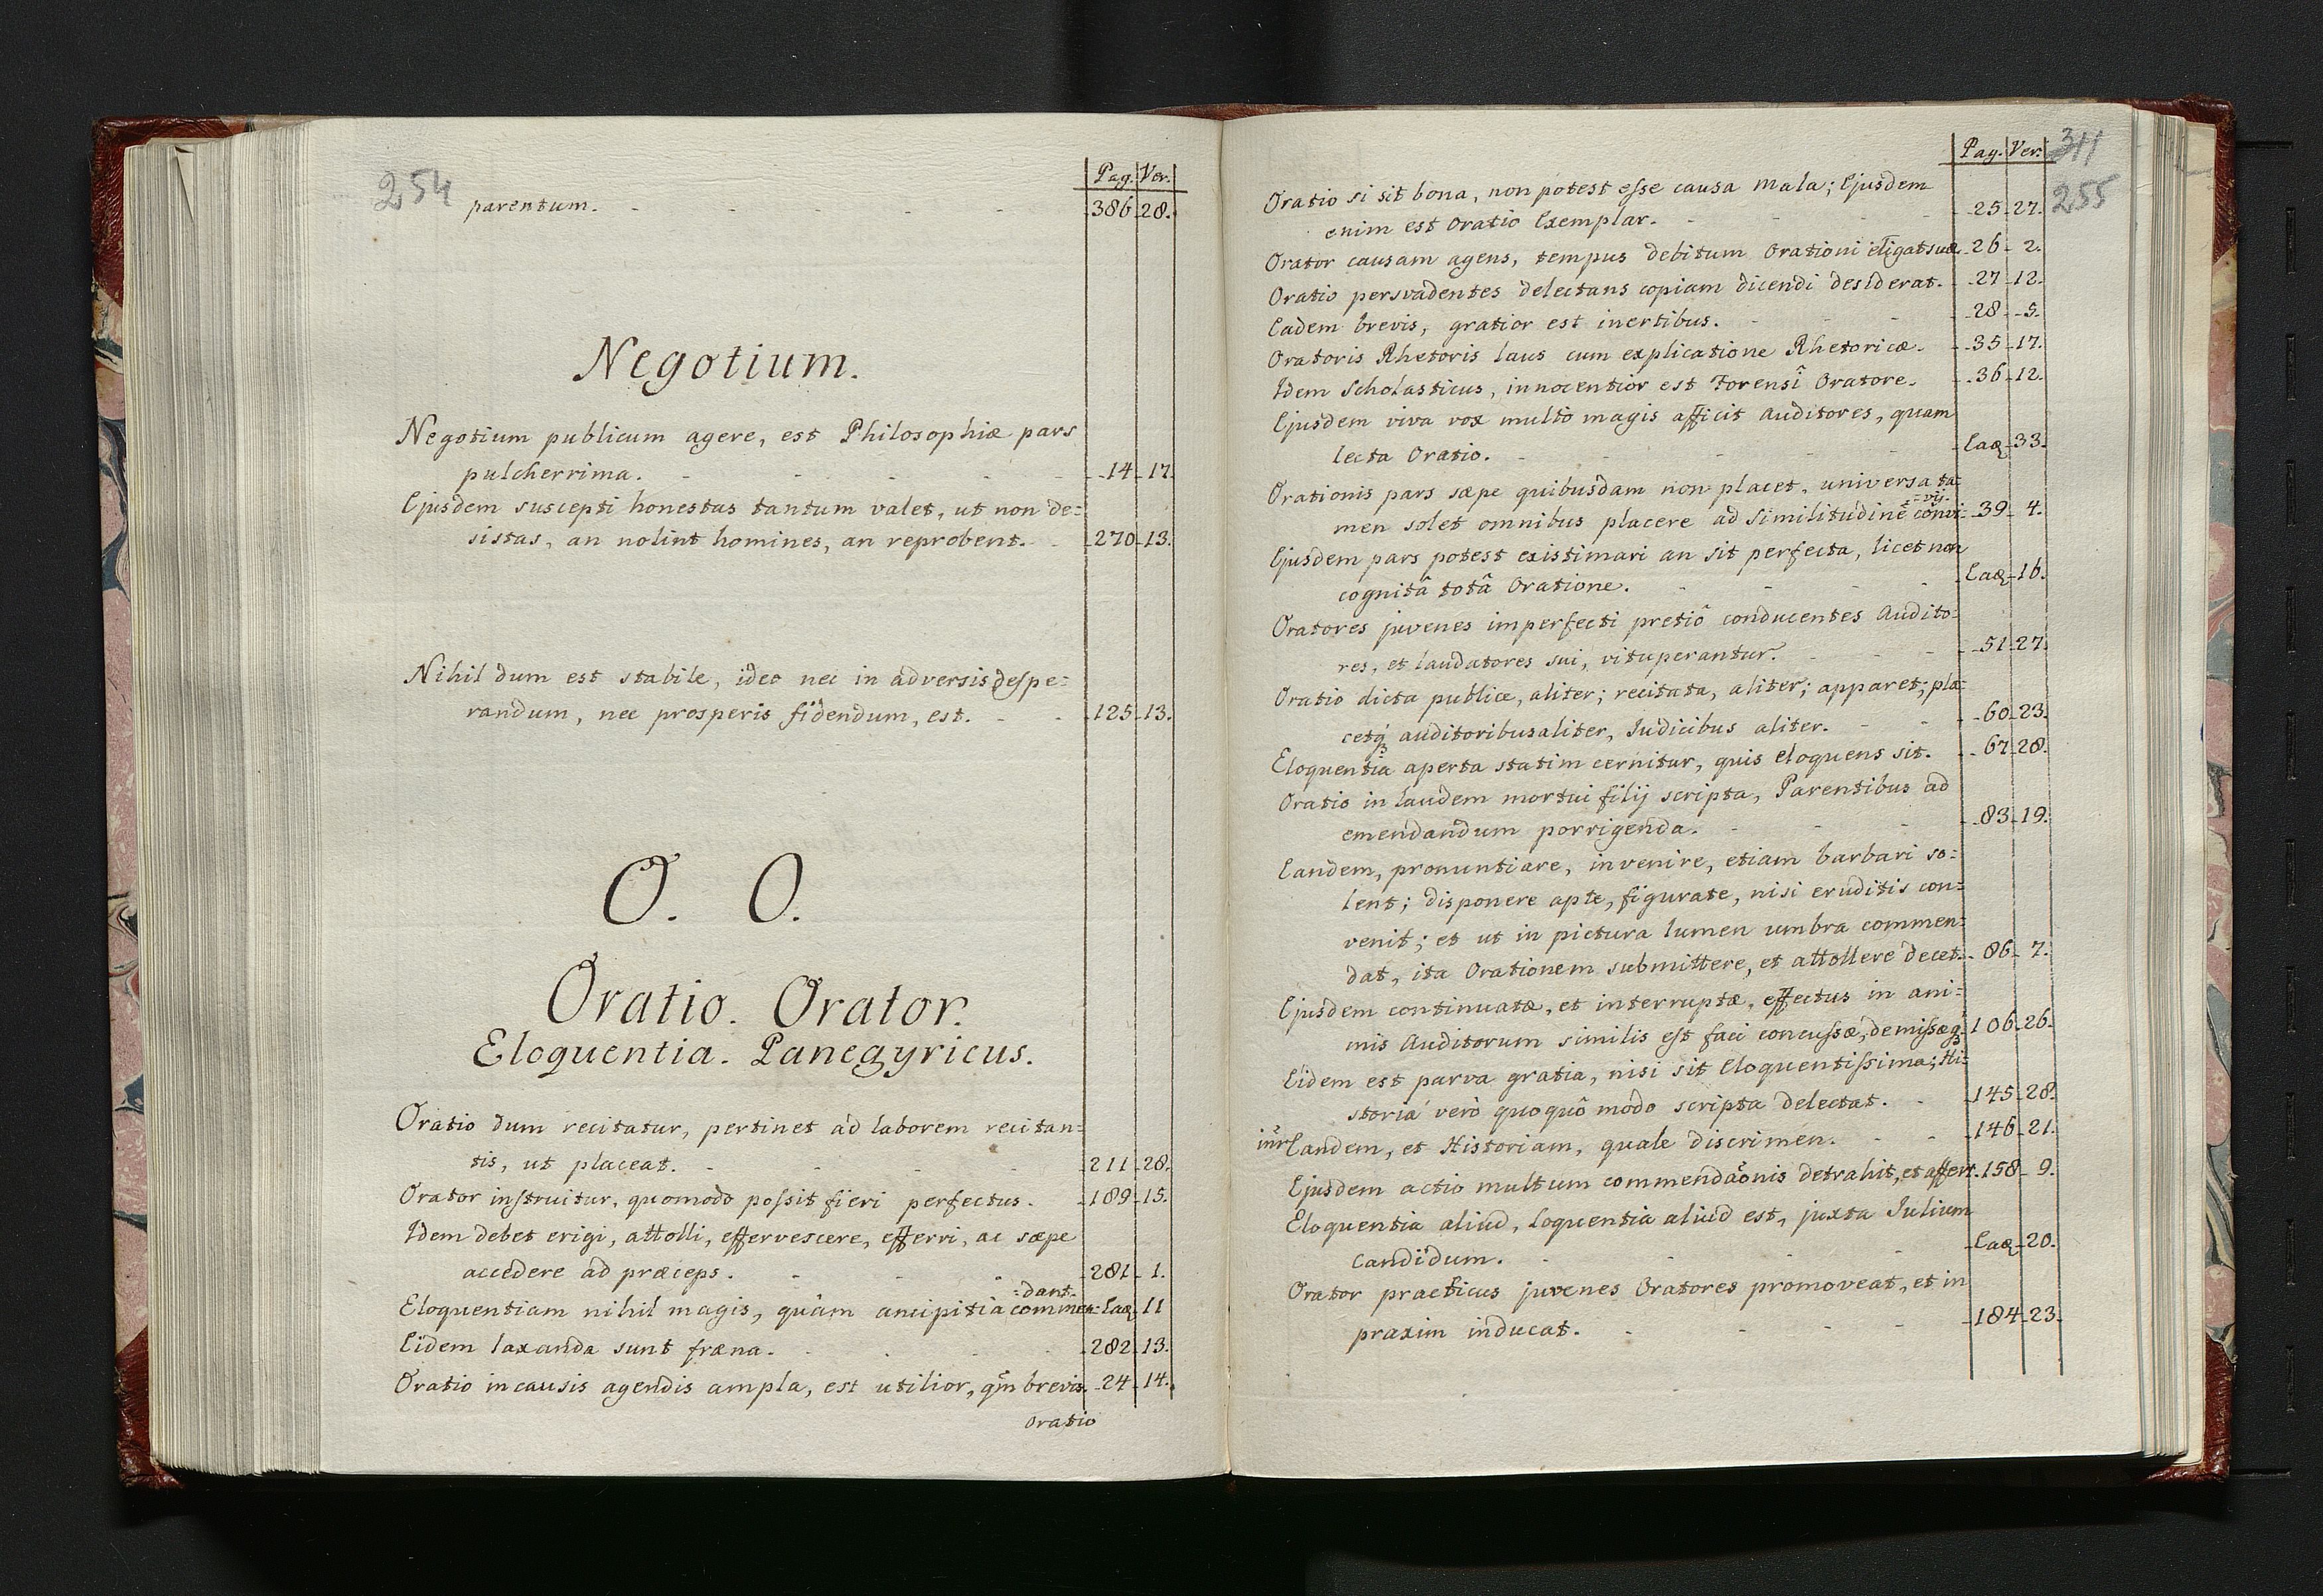 254
Pag. Ver.
parentum. - - - - - 386. 28.
Negotium.
Negotium publicum agere, est Philosophiæ pars
pulcherrima. - - - - - 14. 17.
Ejusdem suscepti honestas tantum valet, ut non de=
sistas, an nolint homines, an reprobent. - 270. 13.
Nihil dum est stabile, ideo nec in adversis despe=
randum, nec prosperis fidendum, est. - - 125. 13.
O. O.
Oratio. Orator.
Eloquentia. Panegyricus.
Oratio dum recitatur, pertinet ad laborem recitan=
tis, ut placeat. - - - - 211. 28.
Orator instruitur, quomodo possit fieri perfectus. - 189. 15.
Idem debet erigi, attolli, effervescere, efferri, ac sæpe
accedere ad præceps. - - - 281. 1.
=dant.
Eloquentiam nihil magis, quàm ancipitia commen= Eaq 11
Eidem laxanda sunt fræna. - - - 282. 13.
Oratio in causis agendis ampla, est utilior, qm̃ brevis. 24. 14.
Oratio
Pag. Ver. 311
255
Oratio si sit bona, non potest esse causa mala; Ejusdem
enim est Oratio Exemplar. - - - - 25. 27.
Orator causam agens, tempus debitum Orationi eligat suæ. 26. 2.
Oratio persvadentes delectans copiam dicendi desiderat. - 27. 12.
Eadem brevis, gratior est inertibus. - - - 28. 5.
Oratoris Rhetoris laus cum explicatione Rhetoricæ. - 35. 17.
Idem Scholasticus, innocentior est Forensî Oratore. - 36. 12.
Ejusdem viva vox multò magis afficit Auditores, quam
lecta Oratio. - - - - - Eaq 33.
Orationis pars sæpe quibusdam non placet, universa ta=
=vij.
men solet omnibus placere ad similitudinē cōnvi= 39. 4.
Ejusdem pars potest existimari an sit perfecta, licet non
cognitâ totâ Oratione. - - - - Eaq 16.
Oratores juvenes imperfecti pretiô conducentes Audito=
res, et laudatores sui, vituperantur. - - - 51. 27.
Oratio dicta publice, aliter; recitata, aliter; apparet; pla=
cetq; auditoribus aliter, Iudicibus aliter. - - 60. 23.
Eloquentia aperta statim cernitur, quis eloquens sit. - 67. 28.
Oratio in laudem mortui filij scripta, Parentibus ad
emendandum porrigenda. - - - 83. 19.
Eandem, pronuntiare, invenire, etiam barbari so=
lent; disponere apte, figurate, nisi eruditis con=
venit; et ut in pictura lumen umbra commen=
dat, ita Orationem submittere, et attollere decet. - 86. 7.
Ejusdem continuatæ, et interruptæ, effectus in ani=
mis Auditorum similis est faci concussæ, demissæq; 106. 26.
Eidem est parva gratia, nisi sit Eloquentissima; Hi=
storia verò quoquô modo scripta delectat. - 145. 28.
int̃r Eandem, et Historiam, quale discrimen. - - 146. 21.
Ejusdem actio multum commendaõnis detrahit, et affert. 158. 9.
Eloquentia aliud, Loquentia aliud est, juxta Iulium
Candidum. - - - - - Eaq 20.
Orator practicus juvenes Oratores promoveat, et in
praxim inducat. - - - - 184. 23.